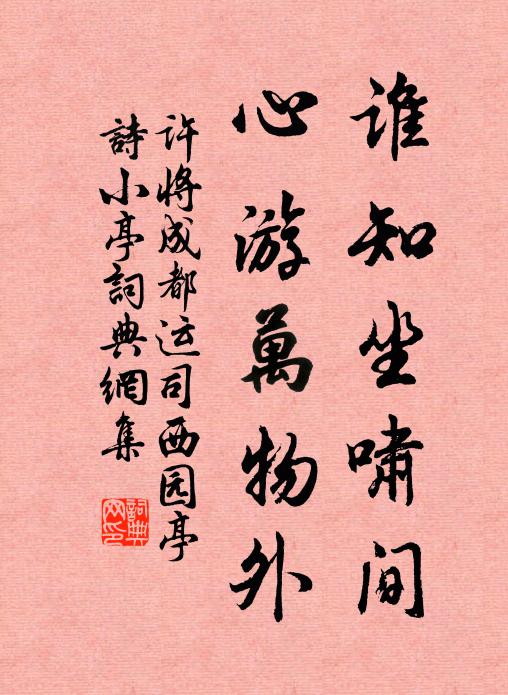 谁知坐啸间
心游萬物外
许将成都运司西园亭
詩小亭詞典網集
詞典
网印